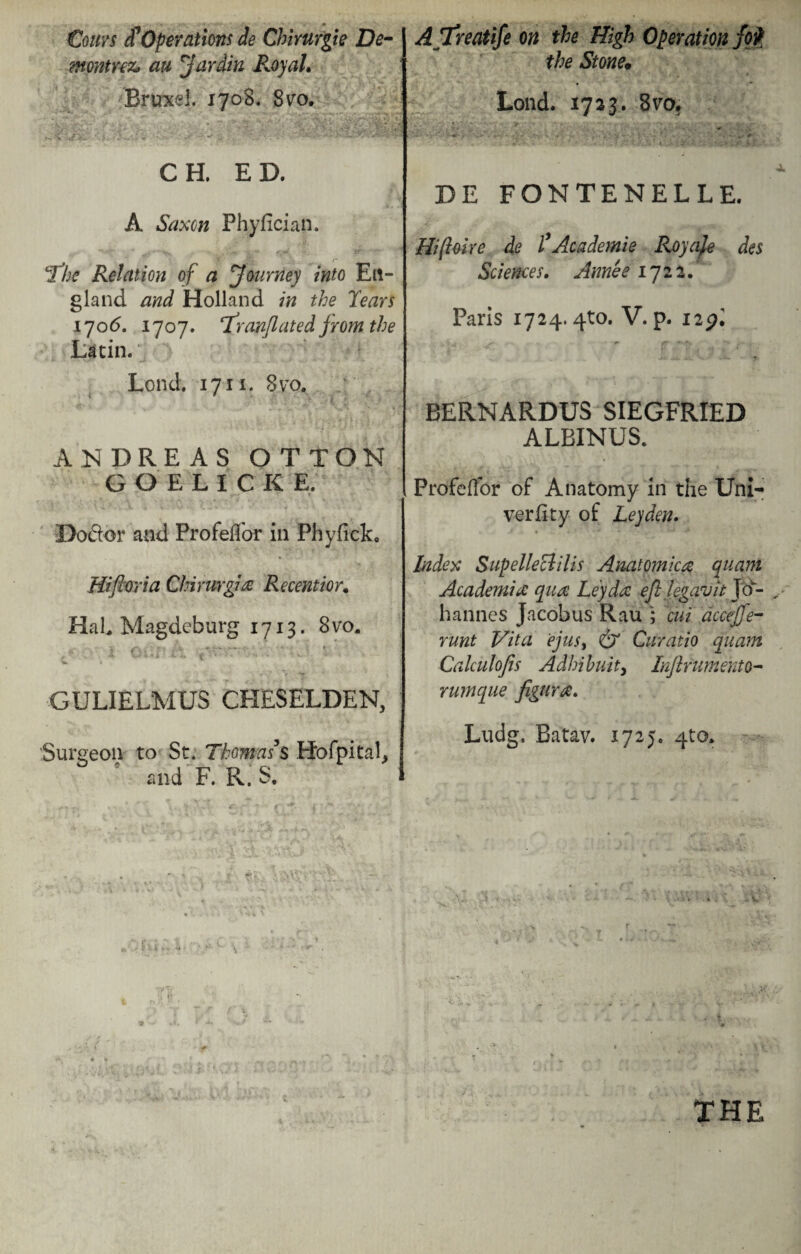 Cours d'Operations de Chirurgie De-
montrez au Jardin Royal.
Bruxel. 1708. 8vo.
CH. ED.
A Saxon Phyſician.
The Relation of a Journey into En-
gland and Holland in the Years
1706. 1707. Tranſlated from the
Latin.
Lond. 1711. 8vo.
ANDREAS OTTON
GOELICKE.
Doctor and Profeſſor in Phyſick.
Hiſtoria Chirurgiæ Recentior.
Hal. Magdeburg 1713. 8vo.
GULIELMUS CHESELDEN,
Surgeon to St. Thomas's Hoſpital,
and F. R. S.
A Treatiſe on the High Operation for
the Stone.
Lond. 1723. 8vo.
DE FONTENELLE.
Hiſtoire de l'Academie Royale des
Sciences. Année 1722.
Paris 1724. 4to. V. p. 129.
BERNARDUS SIEGFRIED
ALBINUS.
Profeſſor of Anatomy in the Uni-
verſity of Leyden.
Index Supellectilis Anatomicæ quam
Academiæ quæ Leydæ eſt legavit Jo-
hannes Jacobus Rau ; cui acceſſe-
runt Vita ejus, & Curatio quam
Calculoſis Adhibuit, Inſtrumento-
rumque figuræ.
Ludg. Batav. 1725. 4to.
THE